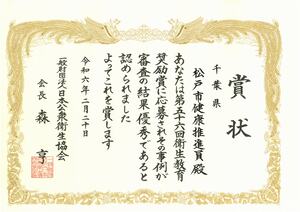 賞状
千葉県
松戸市健康推進員殿
あなたは第五十六回衛生教育
奨励賞に応募されその事例が
審査の結果優秀であると
認められました
よってこれを賞します
令和六年二月二十日
一般財団法人日本公衆衛生協会
会長 森 亨